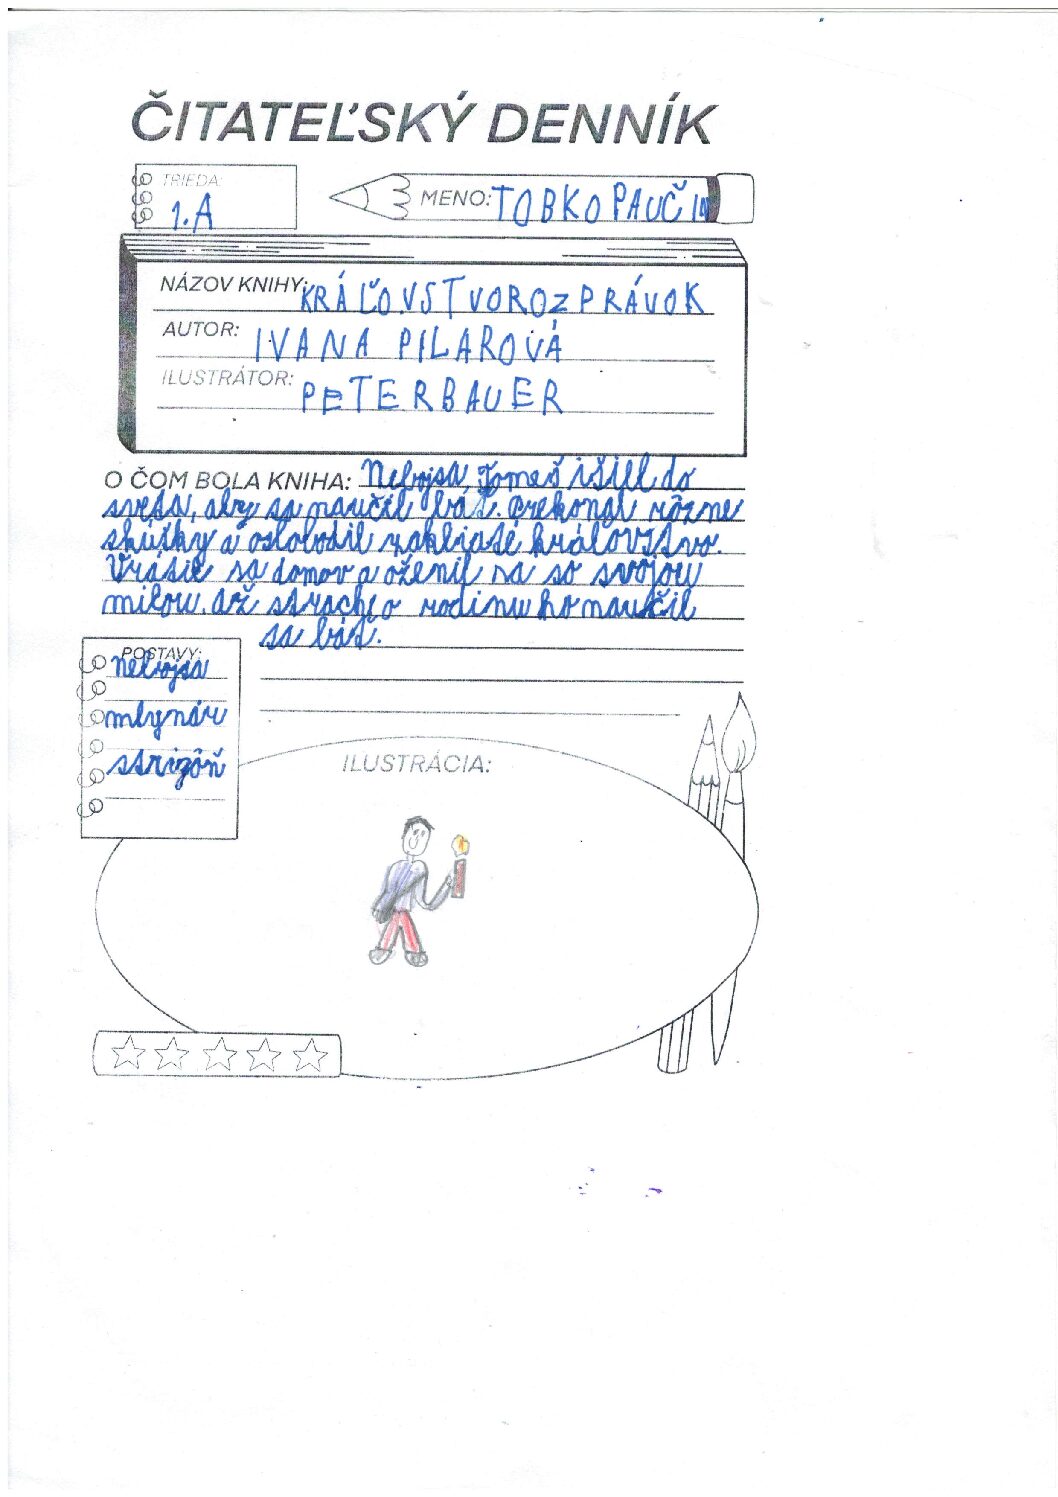 ČITATEĽSKÝ DENNÍK
TRIEDA:
1.A
MENO: TOBKO PAUČIN
NÁZOV KNIHY: KRÁĽOVSTVO ROZPRÁVOK
AUTOR: IVANA PILAROVÁ
ILUSTRÁTOR: PETER BAUER
O ČOM BOLA KNIHA: Nebojsa, Tomeš išiel do
sveta, aby sa naučil báť. Prekonal rôzne
skúšky a oslobodil zakliaté kráľovstvo.
Vrátil sa domov a oženil sa so svojou
milou. Až strach o rodinu ho naučil
sa báť.
POSTAVY:
nebojsa
mlynár
strigôň
ILUSTRÁCIA: